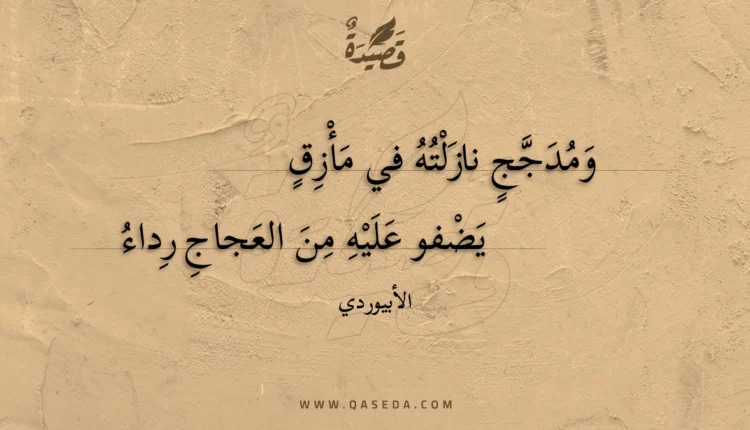 قَصِيدَةٌ
وَمُدَجَّجٍ نازَلْتُهُ في مَأْزِقٍ
يَضْفو عَلَيْهِ مِنَ العَجاجِ رِداءُ
الأبيوردي
WWW.QASEDA.COM